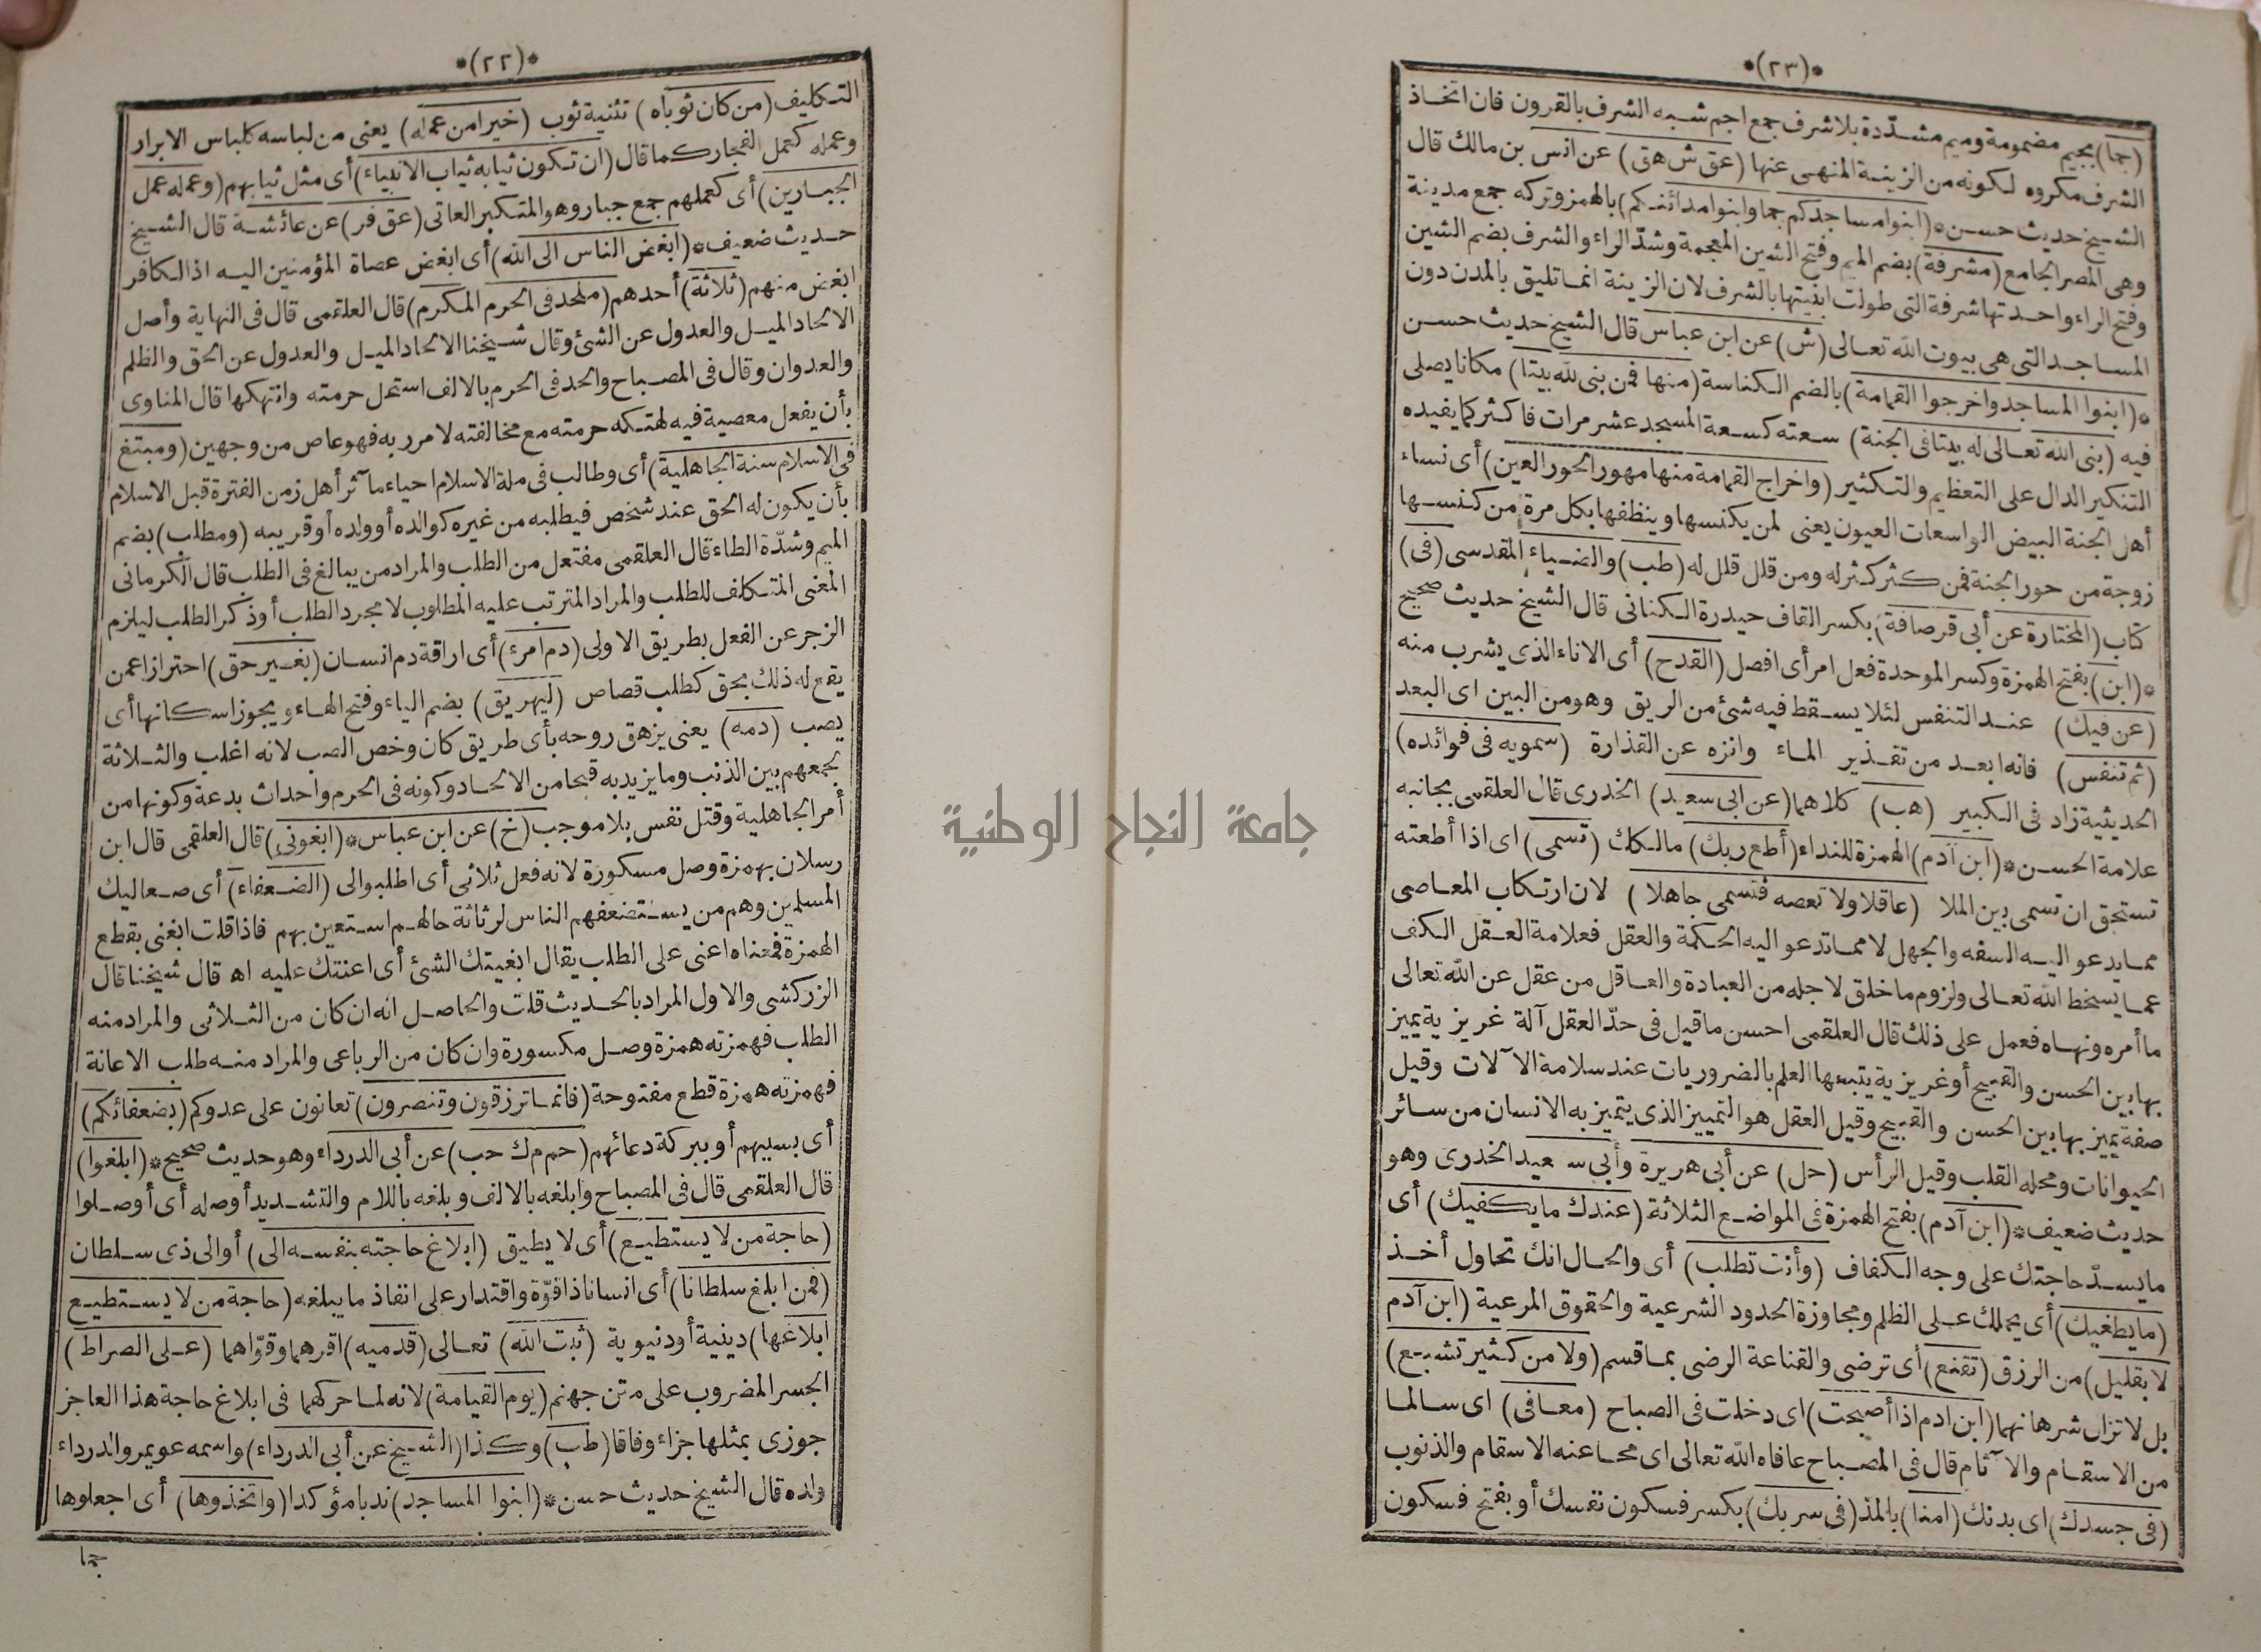 *(٢٢)*
التكليف (من كان ثوباه) تثنية ثوب (خيرا من عمله) يعنى من لباسه كلباس الابرار
وعمله كعمل الفجار كما قال (ان تكون ثيابه ثياب الانبياء) أى مثل ثيابهم (وعمله عمل
الجبارين) أى كعملهم جمع جبار وهو المتكبر العاتى (عق فر) عن عائشة قال الشيخ
حديث ضعيف * (ابغض الناس الى الله) أى ابغض عصاة المؤمنين اليه اذ الكافر
ابغض منهم (ثلاثة) أحدهم (ملحد فى الحرم المكرم) قال العلقمى قال فى النهاية وأصل
الالحاد الميل والعدول عن الشئ وقال شيخنا الالحاد الميل والعدول عن الحق والظلم
والعدوان وقال فى المصباح والحد فى الحرم بالالف استحل حرمته وانتهكها قال المناوى
بأن يفعل معصية فيه لهتكه حرمته مع مخالفته لامر ربه فهو عاص من وجهين (ومبتغ
فى الاسلام سنة الجاهلية) أى وطالب فى ملة الاسلام احياء مآثر أهل زمن الفترة قبل الاسلام
بأن يكون له الحق عند شخص فيطلبه من غيره كوالده أو ولده أو قريبه (ومطلب) بضم
الميم وشدّة الطاء قال العلقمى مفتعل من الطلب والمراد من يبالغ فى الطلب قال الكرمانى
المغنى المتكلف للطلب والمراد المترتب عليه المطلوب لا مجرد الطلب أو ذكر الطلب ليلزم
الزجر عن الفعل بطريق الاولى (دم امرء) أى اراقة دم انسان (بغير حق) احترازا عمن
يقع له ذلك بحق كطلب قصاص (ليهريق) بضم الياء وفتح الهاء ويجوز اسكانها أى
يصب (دمه) يعنى يزهق روحه بأى طريق كان وخص الصب لانه اغلب والثلاثة
تجمعهم بين الذنب وما يزيد به قبحا من الالحاد وكونه فى الحرم واحداث بدعة وكونها من
أمر الجاهلية وقتل نفس بلا موجب (خ) عن ابن عباس * (ابغونى) قال العلقمى قال ابن
رسلان بهمزة وصل مسكورة لانه فعل ثلاثى أى اطلبوا لى (الضعفاء) أى صعاليك
المسلمين وهم من يستضعفهم الناس لرثاثة حالهم استعين بهم فاذا قلت ابغنى بقطع
الهمزة فمعناه اعنى على الطلب يقال ابغيتك الشئ أى اعنتك عليه اه قال شيخنا قال
الزركشى والاول المراد بالحديث قلت والحاصل انه ان كان من الثلاثى والمراد منه
الطلب فهمزته همزة وصل مكسورة وان كان من الرباعى والمراد منه طلب الاعانة
فهمزته همزة قطع مفتوحة (فانما ترزقون وتنصرون) تعانون على عدوكم (بضعفائكم)
أى بسببهم أو ببركة دعائهم (حم م ك حب) عن أبى الدرداء وهو حديث صحيح * (ابلغوا)
قال العلقمى قال فى المصباح وابلغه بالالف وبلغه باللام والتشديد أوصله أى أوصلوا
(حاجة من لا يستطيع) أى لا يطيق (ابلاغ حاجته بنفسه الى) أو الى ذى سلطان
(فمن ابلغ سلطانا) أى انسانا ذا قوّة واقتدار على انفاذ ما يبلغه (حاجة من لا يستطيع
ابلاغها) دينية أو دنيوية (ثبت الله) تعالى (قدميه) اقرهما وقوّاهما (على الصراط)
الجسر المضروب على متن جهنم (يوم القيامة) لانه لما حركهما فى ابلاغ حاجة هذا العاجز
جوزى بمثلها جزاء وفاقا (طب) وكذا (الشيخ عن أبى الدرداء) واسمه عويمر والدرداء
ولده قال الشيخ حديث حسن * (ابنوا المساجد) ندبا مؤكدا (واتخذوها) أى اجعلوها
جما
*(٢٣)*
(جما) بجيم مضمومة وميم مشدّدة بلا شرف جمع اجم شبه الشرف بالقرون فان اتخاذ
الشرف مكروه لكونه من الزينة المنهى عنها (عق ش هق) عن انس بن مالك قال
الشيخ حديث حسن * (ابنوا مساجدكم جما وابنوا مدائنكم) بالهمز وتركه جمع مدينة
وهى المصر الجامع (مشرفة) بضم الميم وفتح الشين المعجمة وشدّ الراء والشرف بضم الشين
وفتح الراء واحدتها شرفة التى طولت ابنيتها بالشرف لان الزينة انما تليق بالمدن دون
المساجد التى هى بيوت الله تعالى (ش) عن ابن عباس قال الشيخ حديث حسن
* (ابنوا المساجد واخرجوا القمامة) بالضم الكناسة (منها فمن بنى لله بيتا) مكانا يصلى
فيه (بنى الله تعالى له بيتا فى الجنة) سعته كسعة المسجد عشر مرات فاكثر كما يفيده
التنكير الدال على التعظيم والتكثير (واخراج القمامة منها مهور الحور العين) أى نساء
أهل الجنة البيض الواسعات العيون يعنى لمن يكنسها وينظفها بكل مرة من كنسها
زوجة من حور الجنة فمن كثر كثر له ومن قلل قلل له (طب) والضياء المقدسى (فى)
كتاب (المختارة عن أبى قرصافة) بكسر القاف حيدرة الكنانى قال الشيخ حديث صحيح
* (ابن) بفتح الهمزة وكسر الموحدة فعل امر أى افصل (القدح) أى الاناء الذى يشرب منه
(عن فيك) عند التنفس لئلا يسقط فيه شئ من الريق وهو من البين اى البعد
(ثم تنفس) فانه ابعد من تقذير الماء وانزه عن القذارة (سمويه فى فوائده)
الحديثية زاد فى الكبير (هب) كلاهما (عن ابى سعيد) الخدرى قال العلقمى بجانبه
علامة الحسن * (ابن آدم) الهمزة للنداء (أطع ربك) مالكك (تسمى) اى اذا أطعته
تستحق ان تسمى بين الملا (عاقلا ولا تعصه فتسمى جاهلا) لان ارتكاب المعاصى
مما يدعو اليه السفه والجهل لا مما تدعو اليه الحكمة والعقل فعلامة العقل الكف
عما يسخط الله تعالى ولزوم ما خلق لاجله من العبادة والعاقل من عقل عن الله تعالى
ما أمره ونهاه فعمل على ذلك قال العلقمى احسن ما قيل فى حدّ العقل آلة غريزية يميز
بها بين الحسن والقبيح أو غريزية يتبعها العلم بالضروريات عند سلامة الآلات وقيل
صفة يميز بها بين الحسن والقبيح وقيل العقل هو التمييز الذى يتميز به الانسان من سائر
الحيوانات ومحله القلب وقيل الرأس (حل) عن أبى هريرة وأبى سعيد الخدرى وهو
حديث ضعيف * (ابن آدم) بفتح الهمزة فى المواضع الثلاثة (عندك ما يكفيك) أى
ما يسدّ حاجتك على وجه الكفاف (وأنت تطلب) أى والحال انك تحاول أخذ
(ما يطغيك) أى يحملك على الظلم ومجاوزة الحدود الشرعية والحقوق المرعية (ابن آدم
لا بقليل) من الرزق (تقنع) أى ترضى والقناعة الرضى بما قسم (ولا من كثير تشبع)
بل لا تزال شرها نهما (ابن ادم اذا أصبحت) اى دخلت فى الصباح (معافى) اى سالما
من الاسقام والآثام قال فى المصباح عافاه الله تعالى اى محا عنه الاسقام والذنوب
(فى جسدك) اى بدنك (امنا) بالمدّ (فى سربك) بكسر فسكون نفسك أو بفتح فسكون
جامعة النجاح الوطنية